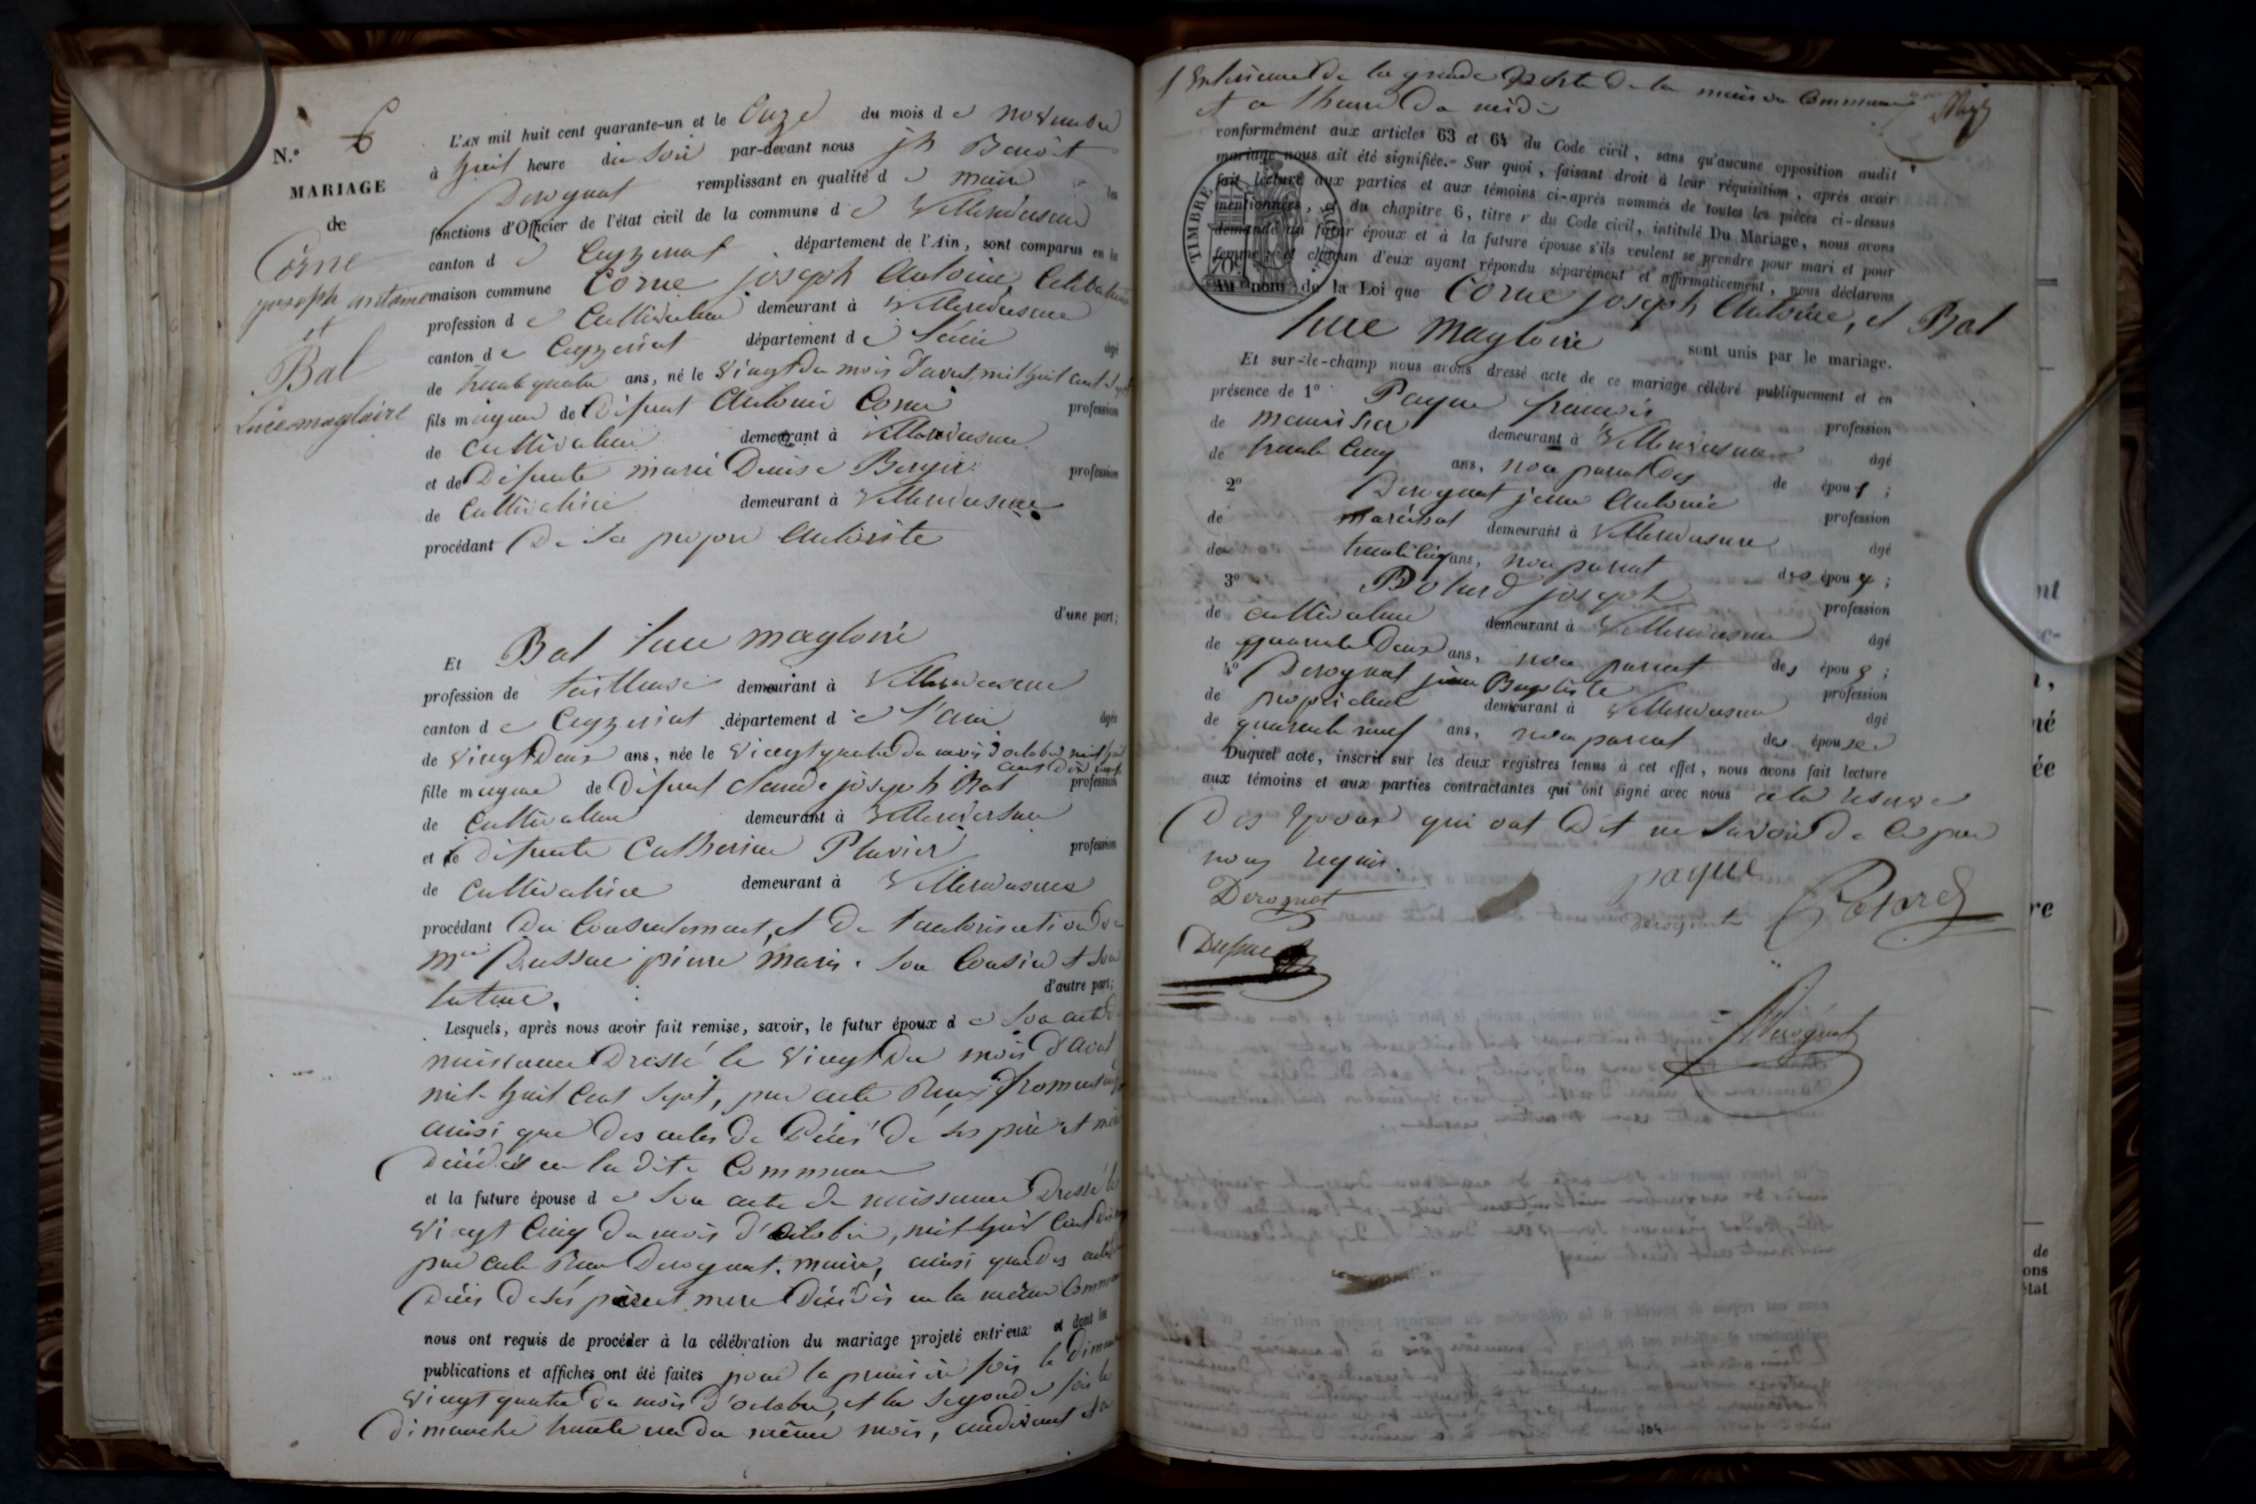 N.º 6
MARIAGE
de
Corne
joseph antoine
et
Bal
Luce magloire
L'AN mil huit cent quarante-un et le Onze du mois de novembre
à huit heure du soir par-devant nous jh Benoit
Derognat remplissant en qualité de maire les
fonctions d'Officier de l'état civil de la commune de Villereversure
canton de Ceyzeriat département de l'Ain, sont comparus en la
maison commune Corne joseph Antoine, Celibataire
profession de Cultivateur demeurant à Villereversure
canton de Ceyzeriat département de l'ain âgé
de trente quatre ans, né le vingt du mois d'aout mil huit cent sept
fils majeur de Défunt Antoine Corne profession
de cultivateur demeurant à Villereversure
et de Défunte marie Denise Bergier profession
de Cultivatrice demeurant à Villereversure
procédant De sa propre Autorité
d'une part;
Et Bal Luce magloire
profession de tailleuse demeurant à Villereversure
canton de Ceyzeriat département de l'ain âgée
de vingt Deux ans, née le vingt quatre du mois d'octobre mil huit
cent dix neuf
fille majeure de Défunt Claude joseph Bal profession
de Cultivateur demeurant à Villereversure
et de Défunte Catherine Pluvier profession
de Cultivatrice demeurant à Villereversure
procédant Du Consentement, et De l'autorisation de
Dussuc pierre Marie. son Cousin et son
tuteur. d'autre part;
Lesquels, après nous avoir fait remise, savoir, le futur époux de son acte de
naissance Dressé le vingt Du mois d'aout
mil-huit cent sept, par acte
ainsi que des actes de Décès de ses père et mère
Décédés en la dite Commune
et la future épouse de son acte de naissance Dressé le
vingt cinq du mois d'octobre, mil huit cent dix neuf
par acte Derognat. maire, ainsi que des actes de
Décès de ses père et mere Décédés en la même Commune
nous ont requis de procéder à la célébration du mariage projeté entr'eux et dont les
publications et affiches ont été faites pour la premiere fois le dimanche
vingt quatre du mois d'octobre, et la segonde fois le
dimanche trente un du même mois, audevant et a
l'Entérieure de la grande porte De la maison Commune
et a l'heure De midi
conformément aux articles 63 et 64 du Code civil, sans qu'aucune opposition audit
mariage nous ait été signifiée. - Sur quoi, faisant droit à leur réquisition, après avoir
fait lecture aux parties et aux témoins ci-après nommés de toutes les pièces ci-dessus
mentionnées, et du chapitre 6, titre v du Code civil, intitulé Du Mariage, nous avons
demandé au futur époux et à la future épouse s'ils veulent se prendre pour mari et pour
femme; et chacun d'eux ayant répondu séparément et affirmativement, nous déclarons
au nom de la Loi que Corne joseph Antoine, et Bal
Luce Magloire sont unis par le mariage.
TIMBRE ROYAL
70
Et sur-le-champ nous avons dressé acte de ce mariage célébré publiquement et en
présence de 1º Payue francois profession
de menuisier demeurant à Villereversure âgé
de trente Cinq ans, non parent des de époux;
2º Derognat jean Antoine profession
de maréchal demeurant à Villereversure âgé
de trente cinq ans, non parent des époux;
3º Bolard joseph profession
de cultivateur demeurant à Villereversure âgé
de quarante Deux ans, non parent des époux;
4º Derognat jean Baptiste profession
de propriétaire demeurant à Villereversure âgé
de quarante neuf ans, non parent des époux
Duquel acte, inscrit sur les deux registres tenus à cet effet, nous avons fait lecture
aux témoins et aux parties contractantes qui ont signé avec nous a la reserve
Des Epoux qui ont Dit ne savoir de ce par
nous requis.
Derognat payue Bolard
Derognat
Dussuc
Derognat